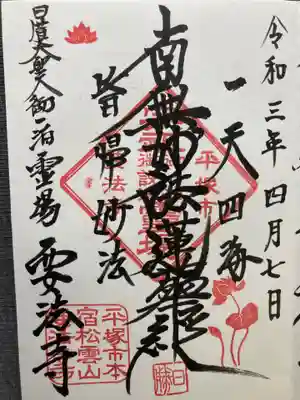 令和三年四月七日
一天四海
南無妙法蓮華経
皆帰妙法
日蓮大聖人御泊霊場
要法寺
平塚市
平塚市本
宿松雲山
要法寺